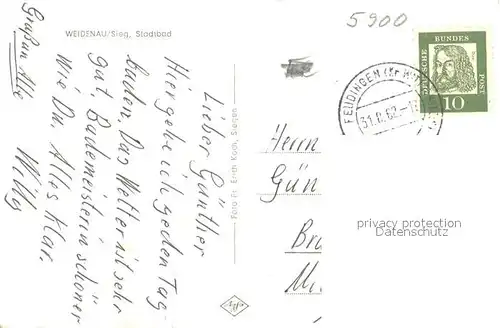 WEIDENAU/Sieg, Stadtbad
Lieber Günther
Hier geh ich jeden Tag
baden. Das Wetter ist sehr
gut, Bademeisterin schöner
wie Du. Alles Klar.
Willy
Grüßan Alle
Foto Fr. Erich Koch, Siegen
5900
FEUDINGEN (Kr
31.8.62.-1
DEUTSCHE
BUNDES
POST
10
Herrn
Gün
Br
M
privacy protection
Datenschutz